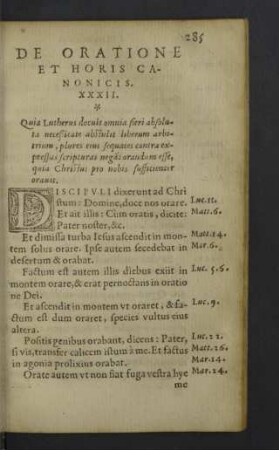 285
DE ORATIONE
ET HORIS CA-
NONICIS.
XXXII.
Quia Lutherus docuit omnia fieri absolu-
ta necessitate abstulit liberum arbi-
trium, plures eius sequaces contra ex-
pressas scripturas negãt orandum esse,
quia Christus pro nobis sufficienter
orauit.
DISCIPVLI dixerunt ad Chri Luc.11.
stum: Domine, doce nos orare. Matt.6.
Et ait illis: Cùm oratis, dicite:
Pater noster, &c.
Et dimissa turba Iesus ascendit in mon- Matt.14.
tem solus orare. Ipse autem secedebat in Mar.6.
desertum & orabat.
Factum est autem illis diebus exiit in Luc.5.6.
montem orare, & erat pernoctans in oratio
ne Dei.
Et ascendit in montem vt oraret, & fa- Luc.9.
ctum est dum oraret, species vultus eius
altera.
Positis genibus orabant, dicens: Pater, Luc.22.
si vis, transfer calicem istum à me. Et factus Matt.26.
in agonia prolixius orabat. Mar.14.
Orate autem vt non fiat fuga vestra hye Mat.24.
me